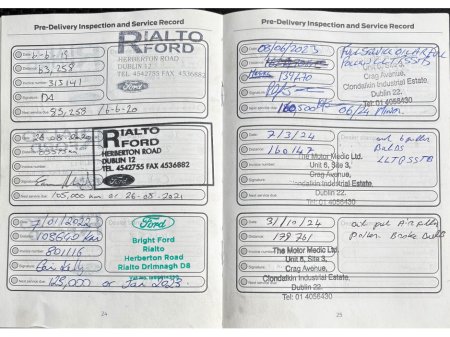 Pre-Delivery Inspection and Service Record
Date 6-6-19
Distance 63,258
Invoice number 313141
Signature DA
Next service due 83,258 / 6-6-20
RIALTO
FORD
HERBERTON ROAD
DUBLIN 12
TEL 4542755 FAX 4536882
Ford
26-08-2020
Invoice number
Signature
Next service due 105,000 km or 26-08-2021
RIALTO
FORD
HERBERTON ROAD
DUBLIN 12
TEL. 4542755 FAX 4536882
Ford
7/01/2022
108640 km
801116
Next service due 125,000 or Jan 2023.
Ford
Bright Ford
Rialto
Herberton Road
Rialto Drimnagh D8
24
Pre-Delivery Inspection and Service Record
Date 08/06/2023
139670
Signature
Next service due 160,500 06/24
Full Service Oil Air Fuel
Pollen
Crag Avenue,
Clondalkin Industrial Estate,
Dublin 22.
Tel: 01 4058430
Date 7/3/24
Distance 160147
Invoice number
Signature
Next service due
The Motor Medic Ltd.
Unit 6, Site 3,
Crag Avenue,
Clondalkin Industrial Estate,
Dublin 22.
Tel: 01 4058430
Date 3/10/24
Distance 178761
Invoice number
Signature
Next service due
Pollen Brake
The Motor Medic Ltd.
Unit 6, Site 3,
Crag Avenue,
Clondalkin Industrial Estate,
Dublin 22.
Tel: 01 4058430
25